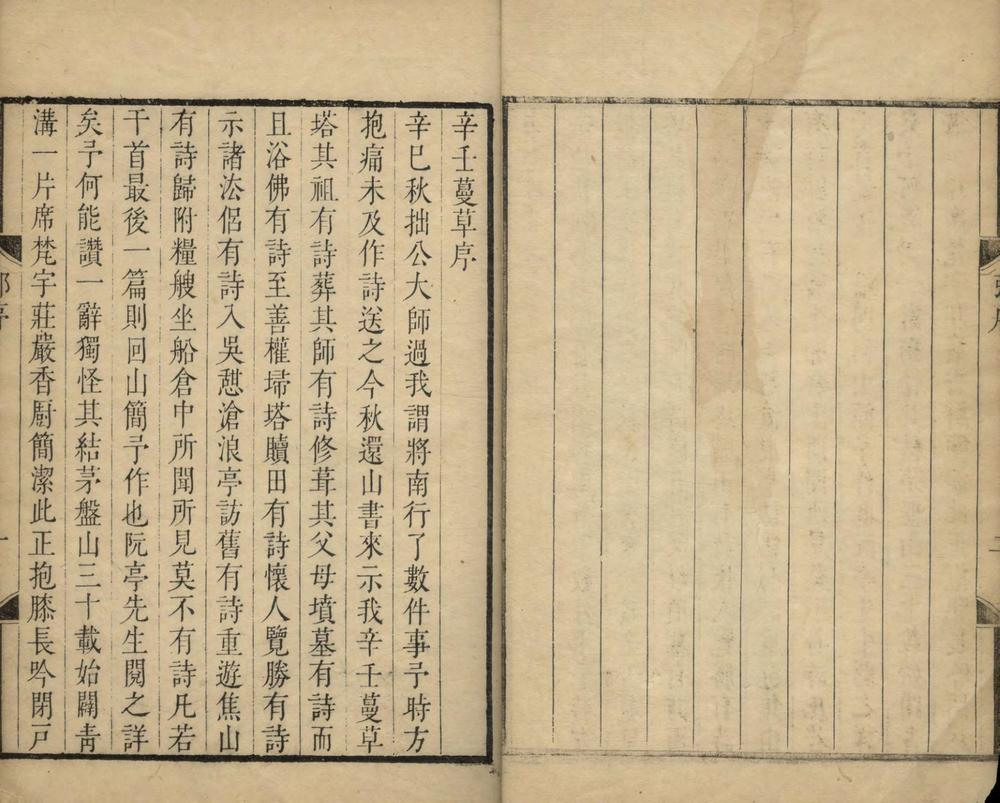 辛壬蔓草序
辛巳秋拙公大師過我謂將南行了數件事予時方
抱痛未及作詩送之今秋還山書來示我辛壬蔓草
塔其祖有詩葬其師有詩修葺其父母墳墓有詩而
且浴佛有詩至善權埽塔贖田有詩懷人覽勝有詩
示諸法侶有詩入吳憇滄浪亭訪舊有詩重遊焦山
有詩歸附糧艘坐船倉中所聞所見莫不有詩凡若
干首最後一篇則回山簡予作也阮亭先生閱之詳
矣予何能讚一辭獨怪其結茅盤山三十載始闢青
溝一片席梵宇莊嚴香厨簡潔此正抱膝長吟閉戸